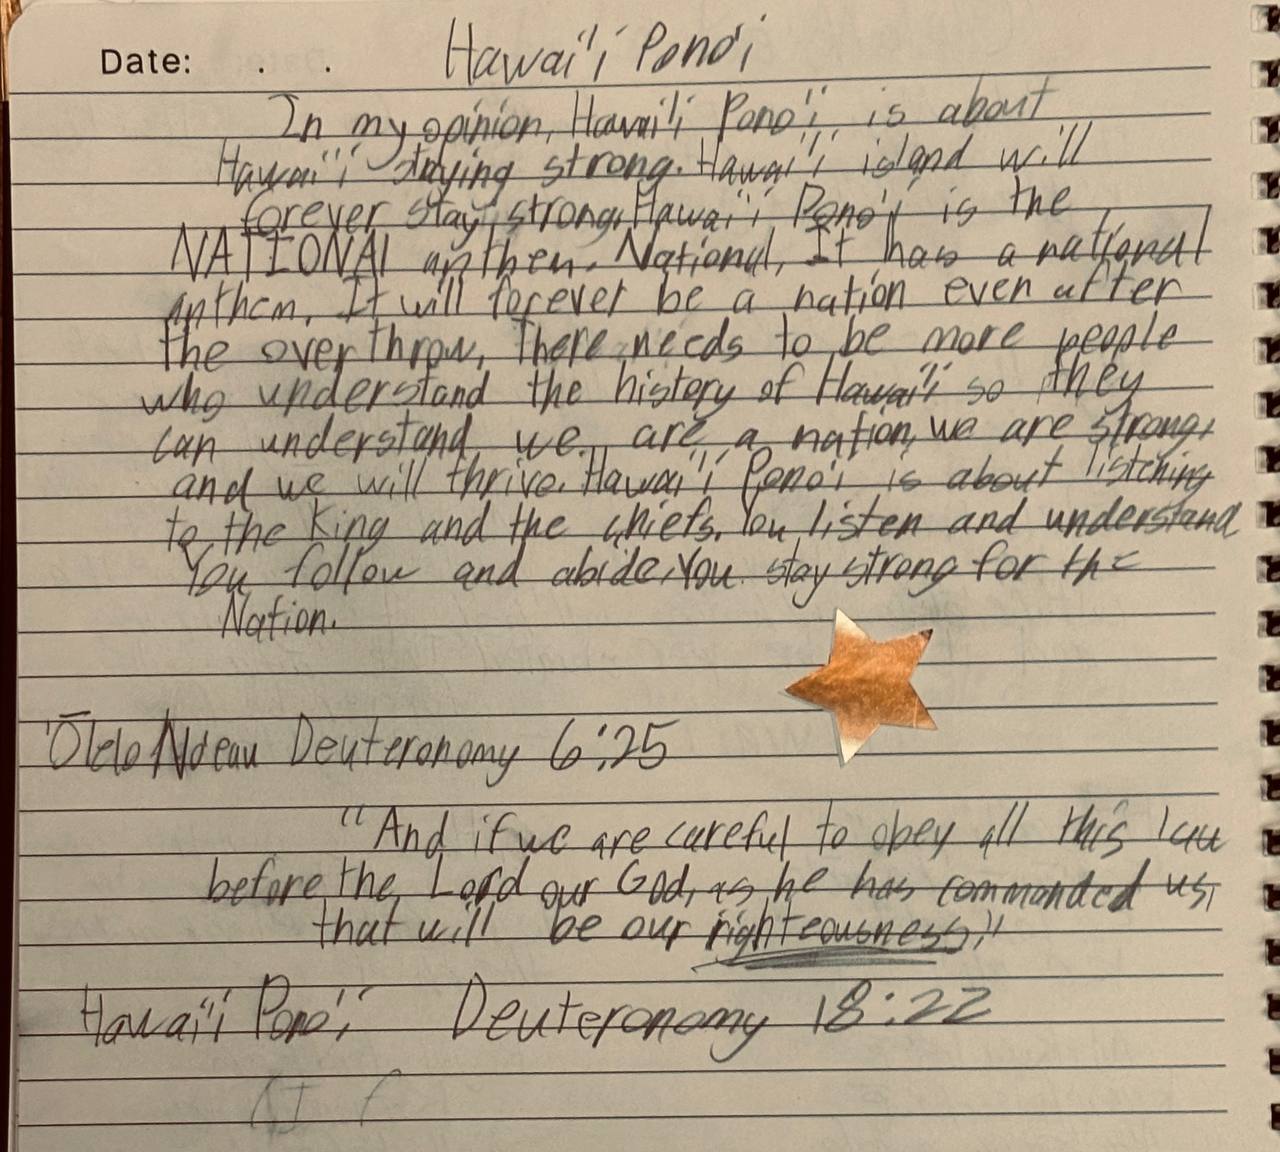 Date: . .
Hawai'i Pono'i
In my opinion, Hawai'i Pono'i is about
Hawai'i staying strong. Hawai'i island will
forever stay strong. Hawai'i Pono'i is the
NATIONAl anthem. National, It has a national
anthem. It will forever be a nation even after
the overthrow, There needs to be more people
who understand the history of Hawai'i so they
can understand we are a nation, we are strong,
and we will thrive. Hawai'i Pono'i is about listening
to the King and the chiefs. You listen and understand
You follow and abide, You stay strong for the
Nation.
'Ōlelo Noeau Deuteronomy 6:25
"And if we are careful to obey all this law
before the Lord our God, as he has commanded us,
that will be our righteousness."
Hawai'i Pono'i Deuteronomy 18:22